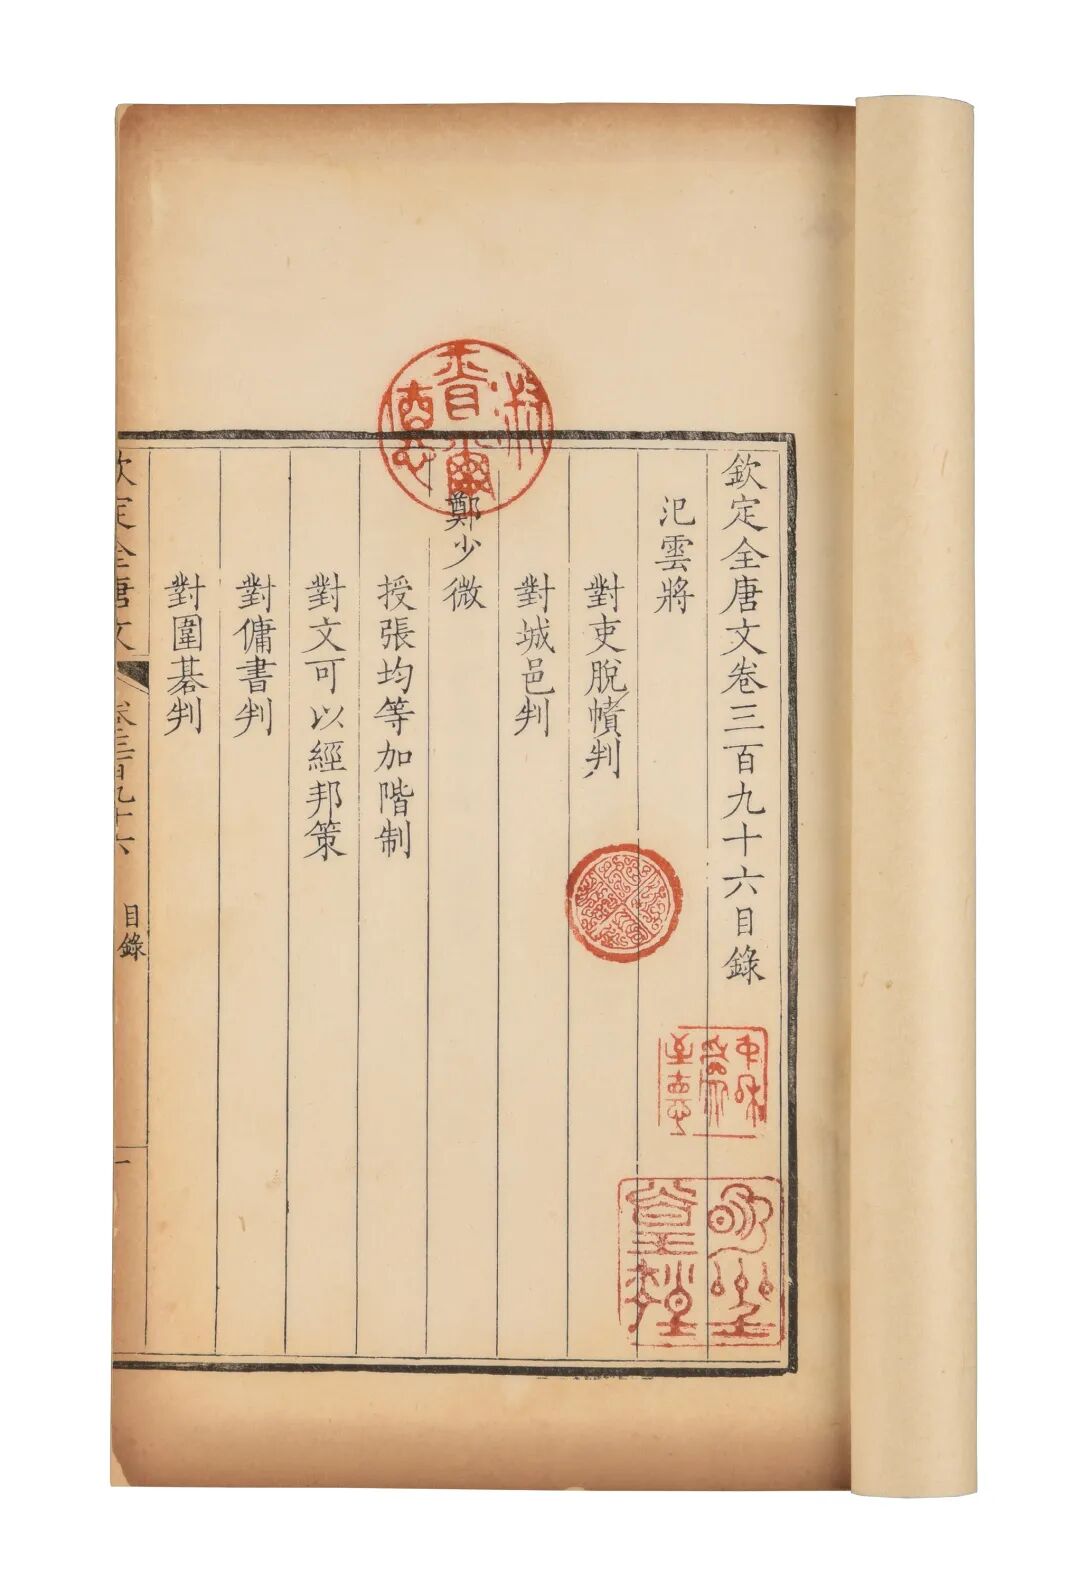 欽定全唐文卷三百九十六目錄
氾雲將
對吏脫幘判
對城邑判
鄭少微
授張均等加階制
對文可以經邦策
對傭書判
對圍碁判
欽定全唐文
卷三百九十六
目錄
一